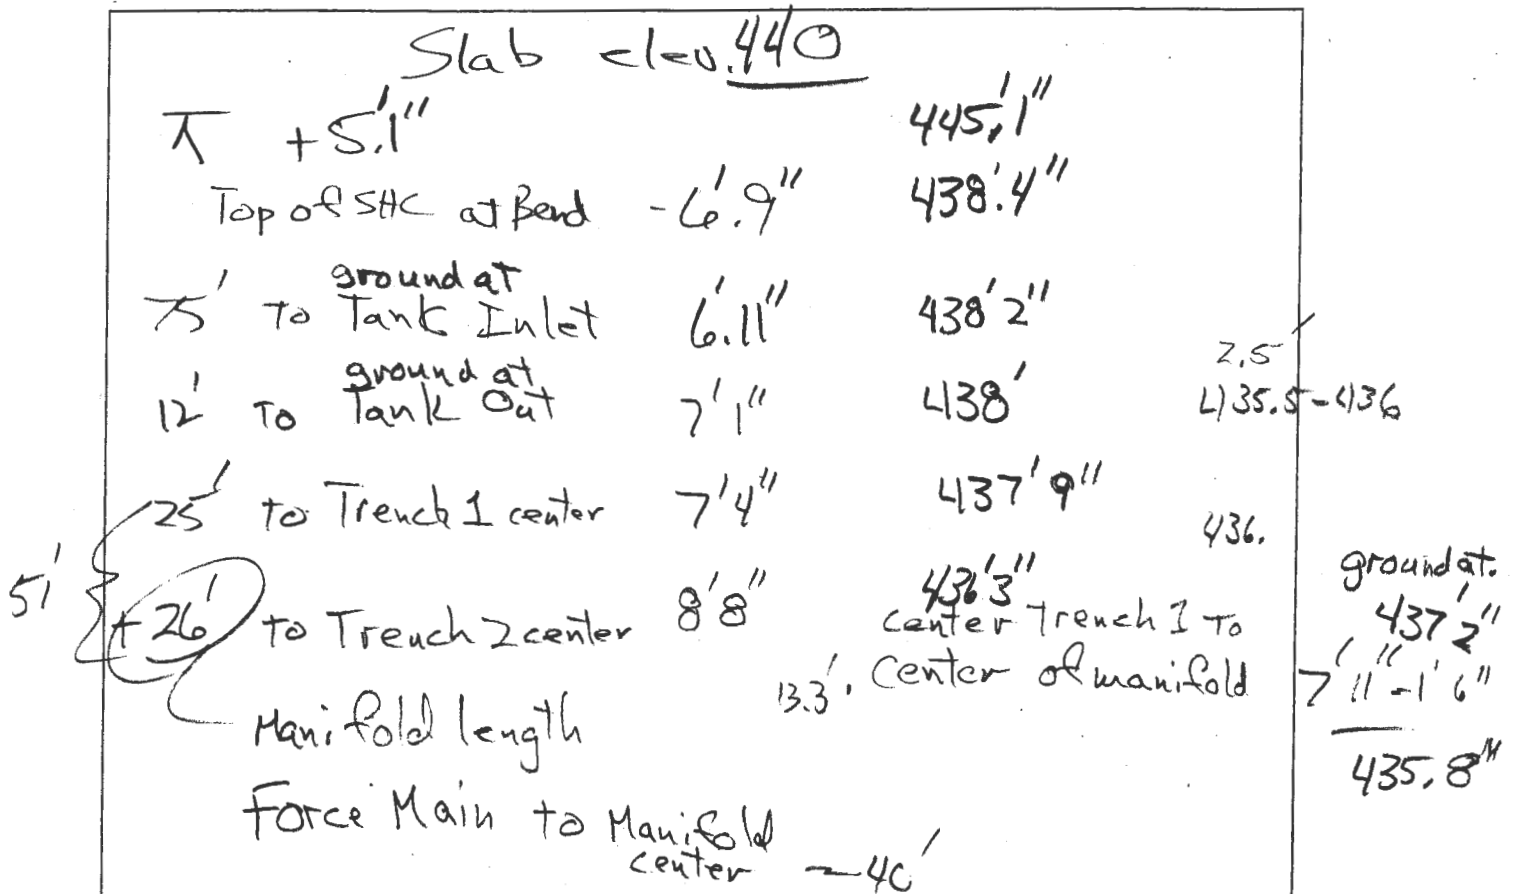 Slab elev. 440
⊼ +5'.1" 445'.1"
Top of SHC at Bend -6'.9" 438'.4"
ground at
75' To Tank Inlet 6'.11" 438' 2"
2.5'
ground at
12' To Tank Out 7' 1" 438' 435.5-436
25' to Trench 1 center 7' 4" 437' 9"
436.
51' { +26' to Trench 2 center 8' 8" 436' 3"
ground at.
437' 2"
center Trench 1 To
13.3'. center of manifold 7' 11" -1' 6"
435.8"
Manifold length
Force Main to Manifold
center — 40'